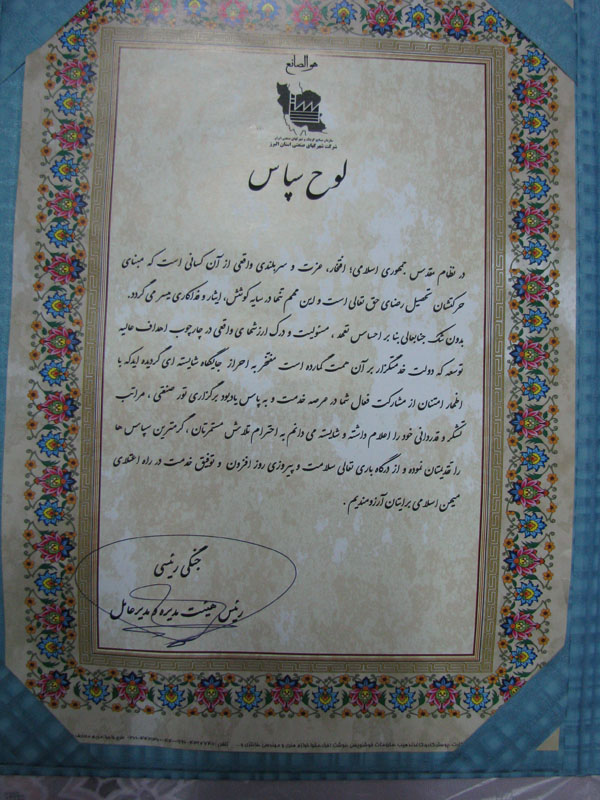 هو الصانع
سازمان صنایع کوچک و شهرکهای صنعتی ایران
شرکت شهرکهای صنعتی استان البرز
لوح سپاس
در نظام مقدس جمهوری اسلامی؛ افتخار، عزت و سربلندی واقعی از آن کسانی است که مبنای
حرکتشان تحصیل رضای حق تعالی است و این مهم تنها در سایه کوشش، ایثار و فداکاری میسر می گردد.
بدون شک جنابعالی بنا بر احساس تعهد، مسئولیت و درک ارزشهای واقعی در چارچوب اهداف عالیه
توسعه که دولت خدمتگزار بر آن همت گمارده است مفتخر به احراز جایگاه شایسته ای گردیده ایدکه با
اظهار امتنان از مشارکت فعال شما در عرصه خدمت و به پاس یادبود برگزاری تور صنعتی، مراتب
تشکر و قدردانی خود را اعلام داشته و شایسته می دانم به احترام تلاش مستمرتان، گرمترین سپاس ها
را تقدیمتان نموده و از درگاه باری تعالی سلامت و پیروزی روز افزون و توفیق خدمت در راه اعتلای
میهن اسلامی برایتان آرزومندیم.
جنگی رئیسی
رئیس هیئت مدیره و مدیرعامل